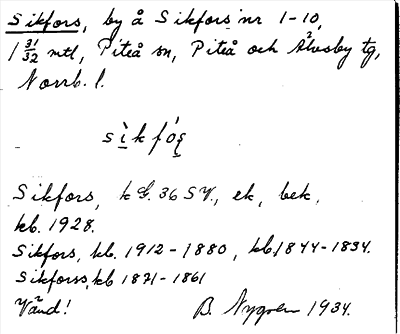 Sikfors, by å Sikfors nr 1-10,
1 31/32 mtl, Piteå sn, Piteå och Älvsby tg,
Norrb. l.
sìkfóş
Sikfors, k G. 36 SV., ek, bek,
kb. 1928.
Sikfors, kb. 1912-1880, kb. 1844-1834.
Sikforss, kb 1871-1861
Vänd! B. Nygren 1934.